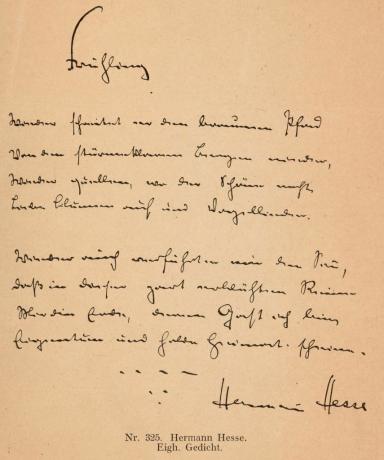 Frühling
Wieder schreitet er den braunen Pfad
Von den stürmeklaren Bergen nieder,
Wieder quellen, wo der Schöne naht
Liebe Blumen auf und Vogellieder.
Wieder auch verführt er mir den Sinn,
daß in dieser zart erblühten Reine
Mir die Erde, deren Gast ich bin
Eigentum und holde Heimat scheine.
Hermann Hesse
Nr. 325. Hermann Hesse.
Eigh. Gedicht.